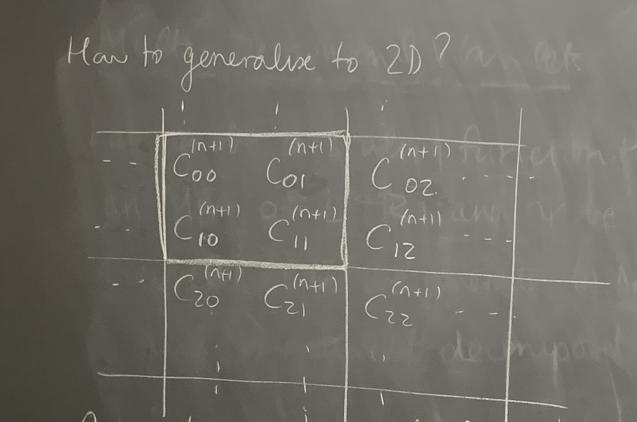 How to generalise to 2D?
C₀₀⁽ⁿ⁺¹⁾ C₀₁⁽ⁿ⁺¹⁾ C₀₂⁽ⁿ⁺¹⁾
C₁₀⁽ⁿ⁺¹⁾ C₁₁⁽ⁿ⁺¹⁾ C₁₂⁽ⁿ⁺¹⁾
C₂₀⁽ⁿ⁺¹⁾ C₂₁⁽ⁿ⁺¹⁾ C₂₂⁽ⁿ⁺¹⁾